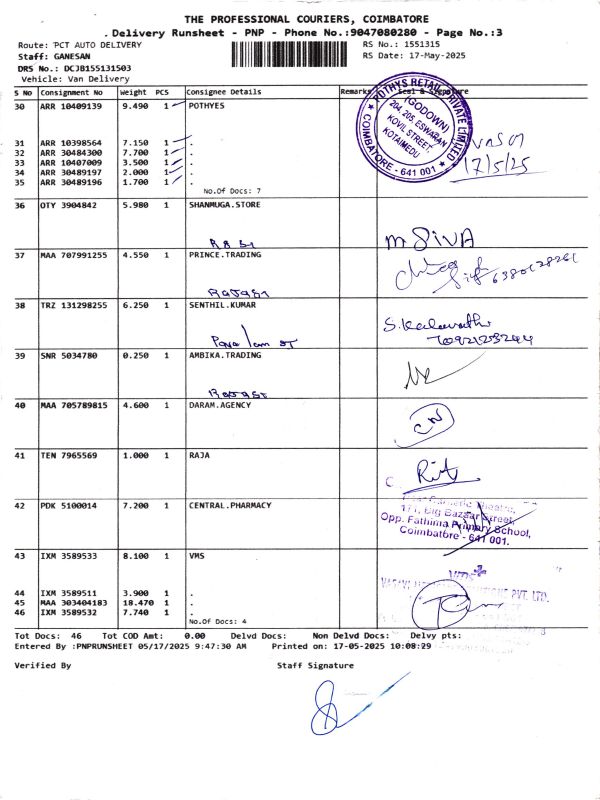 THE PROFESSIONAL COURIERS, COIMBATORE
. Delivery Runsheet - PNP - Phone No.:9047080280 - Page No.:3
Route: PCT AUTO DELIVERY RS No.: 1551315
Staff: GANESAN RS Date: 17-May-2025
DRS No.: DCJB155131503
Vehicle: Van Delivery
S No Consignment No Weight PCS Consignee Details Remarks Seal & Signature
30 ARR 10409139 9.490 1 POTHYES
POTHYS RETAIL PRIVATE LIMITED
(GODOWN)
204, 205, ESWARAN
KOVIL STREET,
KOTAIMEDU
COIMBATORE - 641 001
31 ARR 10398564 7.150 1 .
32 ARR 30484300 7.700 1 .
33 ARR 10407009 3.500 1 .
34 ARR 30489197 2.000 1 .
35 ARR 30489196 1.700 1 .
17/5/25
No.Of Docs: 7
36 OTY 3904842 5.980 1 SHANMUGA.STORE
M SIVA
37 MAA 707991255 4.550 1 PRINCE.TRADING
38 TRZ 131298255 6.250 1 SENTHIL.KUMAR
39 SNR 5034780 0.250 1 AMBIKA.TRADING
40 MAA 705789815 4.600 1 DARAM.AGENCY
41 TEN 7965569 1.000 1 RAJA
42 PDK 5100014 7.200 1 CENTRAL.PHARMACY
171, Big Bazaar Street,
Opp. Fathima Primary School,
Coimbatore - 641 001.
43 IXM 3589533 8.100 1 VMS
vms
PVT. LTD.
44 IXM 3589511 3.900 1 .
45 MAA 303404183 18.470 1 .
46 IXM 3589532 7.740 1 .
No.Of Docs: 4
Tot Docs: 46 Tot COD Amt: 0.00 Delvd Docs: Non Delvd Docs: Delvy pts:
Entered By :PNPRUNSHEET 05/17/2025 9:47:30 AM Printed on: 17-05-2025 10:08:29
Verified By Staff Signature